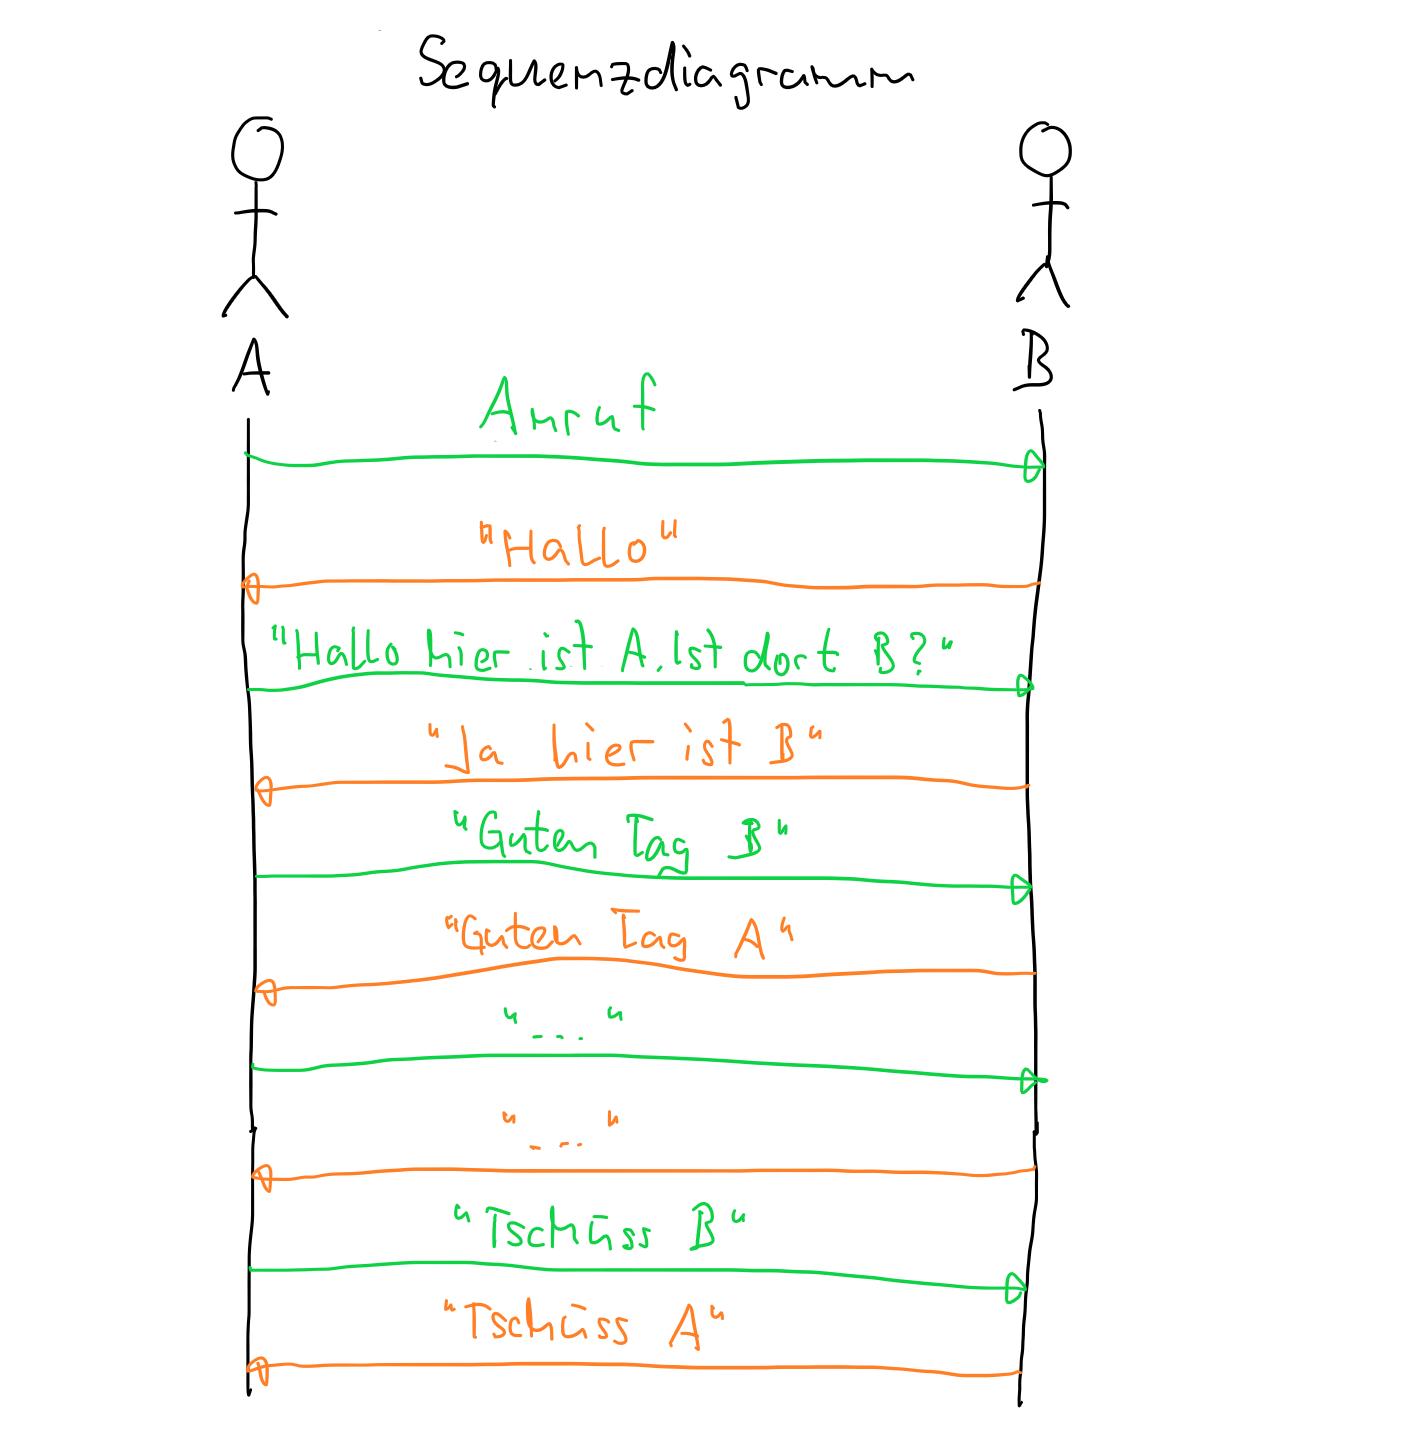 Sequenzdiagramm
A
B
Anruf
"Hallo"
"Hallo hier ist A. Ist dort B?"
"Ja hier ist B"
"Guten Tag B"
"Guten Tag A"
"..."
"..."
"Tschüss B"
"Tschüss A"